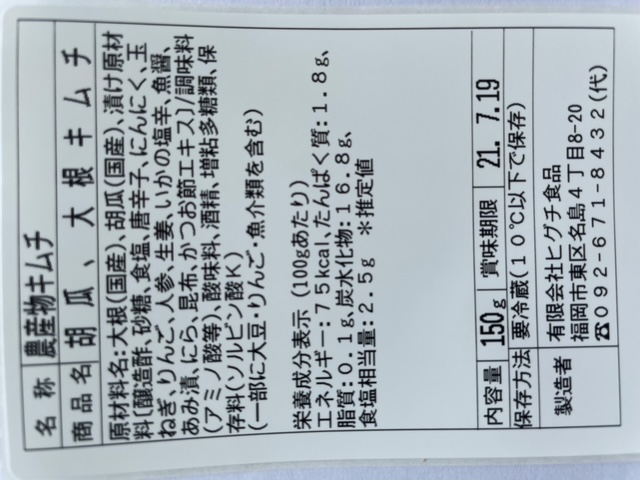 名称 農産物キムチ
商品名 胡瓜、大根キムチ
原材料名:大根(国産)、胡瓜(国産)、漬け原材
料[醸造酢、砂糖、食塩、唐辛子、にんにく、玉
ねぎ、りんご、人参、生姜、いかの塩辛、魚醤、
あみ漬、にら、昆布、かつお節エキス]/調味料
(アミノ酸等)、酸味料、酒精、増粘多糖類、保
存料(ソルビン酸K)
(一部に大豆・りんご・魚介類を含む)
栄養成分表示(100gあたり)
エネルギー:75kcal、たんぱく質:1.8g、
脂質:0.1g、炭水化物:16.8g、
食塩相当量:2.5g *推定値
内容量 150g 賞味期限 21. 7.19
保存方法 要冷蔵(10℃以下で保存)
製造者 有限会社ヒグチ食品
福岡市東区名島4丁目8-20
☎092-671-8432(代)